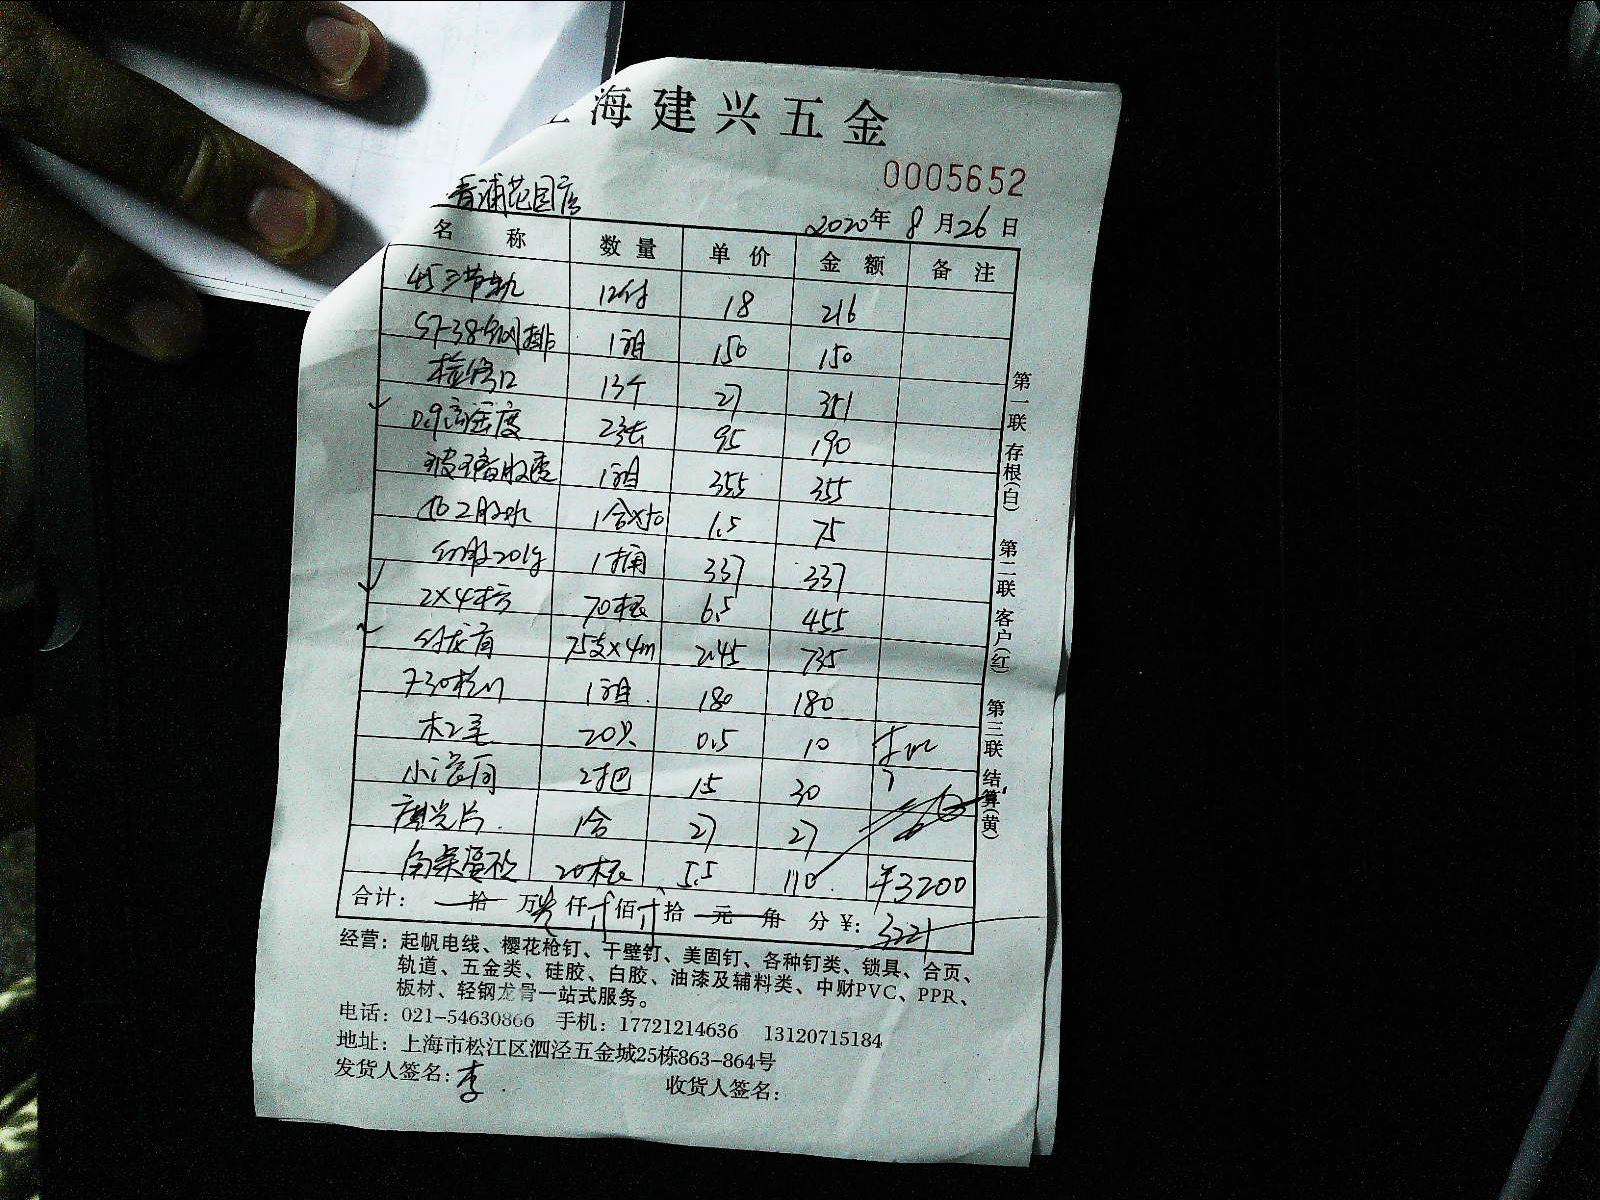 海建兴五金
0005652
青浦花园店
2020年 8月26日
名称 数量 单价 金额 备注
45三节轨 12付 18 216
57-38钢排 1箱 150 150
13个 27 351
0.9高密度 2张 95 190
玻璃胶 1箱 355 355
502胶水 1合×50 1.5 75
20kg 1桶 337 337
2×4 70根 6.5 455
龙骨 75支×4m 2.45 735
730 1箱 180 180
木工笔 20只 0.5 10
小滚筒 2把 15 30
1合 27 27
20根 5.5 110 ¥3200
合计: 拾 万 仟 佰 拾 元 角 分 ¥: 3221
经营: 起帆电线、樱花枪钉、干壁钉、美固钉、各种钉类、锁具、合页、
轨道、五金类、硅胶、白胶、油漆及辅料类、中财PVC、PPR、
板材、轻钢龙骨一站式服务。
电话: 021-54630866 手机: 17721214636 13120715184
地址: 上海市松江区泗泾五金城25栋863-864号
发货人签名: 李 收货人签名:
第一联 存根(白) 第二联 客户(红) 第三联 结算(黄)